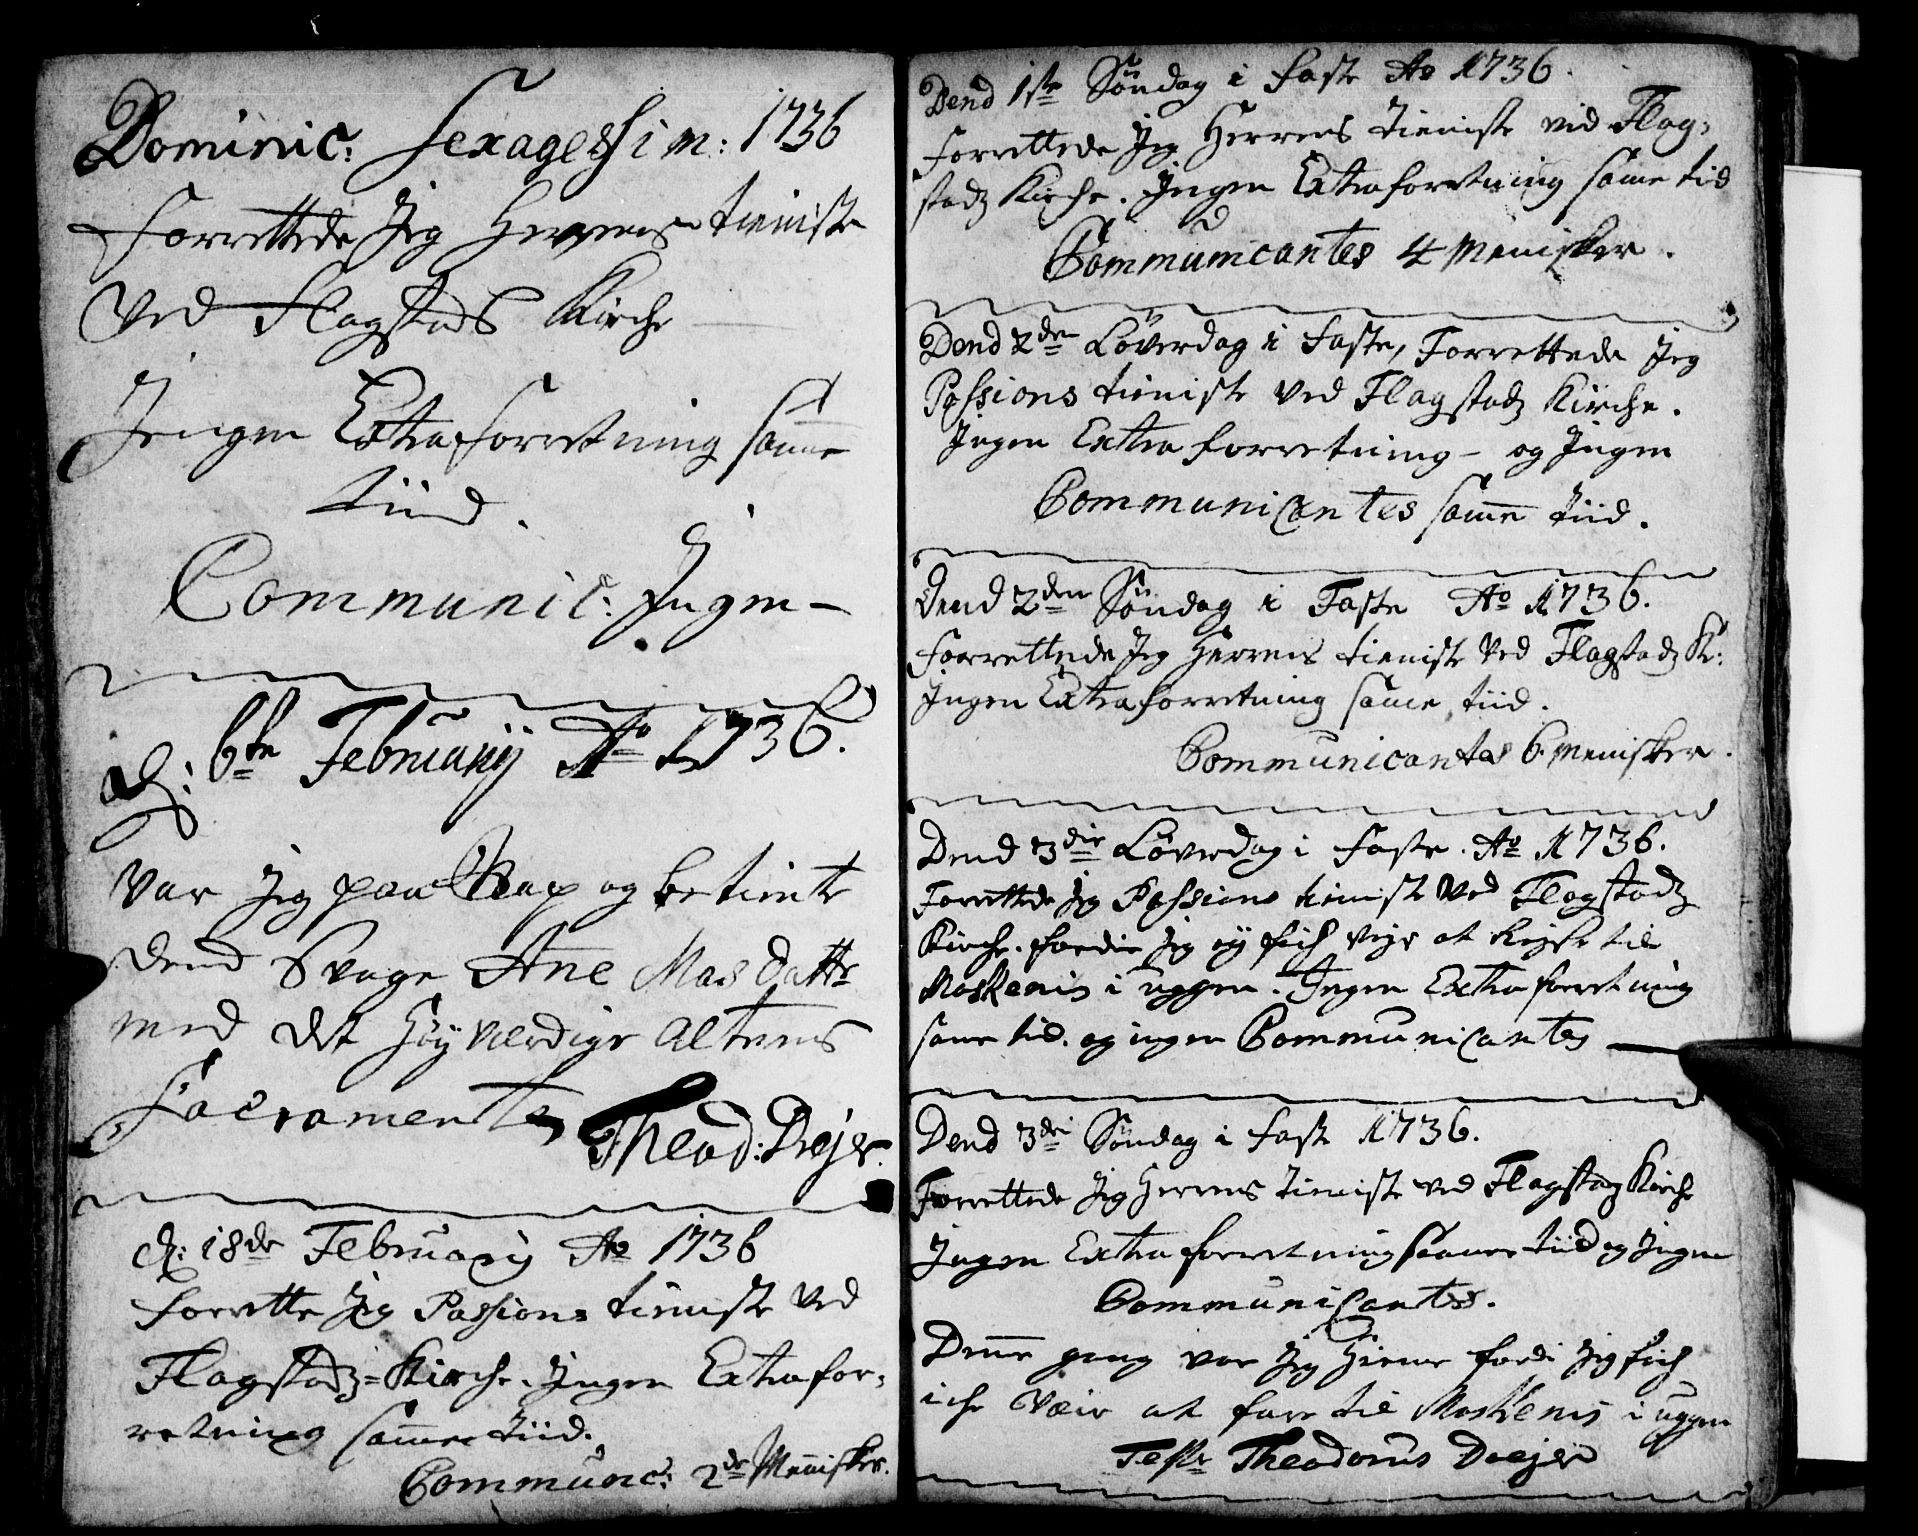 Dominic: Sexagessim: 1736
Forrettede Jeg Herrens tieniste
Ved Flagstads Kirche
Ingen Extraforretning samme
tiid.
Communic: Ingen –
d: 6te February Ao 1736.
Var Jeg paa Nap og betiente
dend Svage Ane Mas Datter
med det Høyværdige Altrens
Sacramente Theod: Deejer.
d: 18de February Ao 1736
Forrette Jeg Passions tieniste ved
Flagstadz Kirche. Ingen Extrafor-
retning samme tiid.
Communc: 2de Mennisker.
Dend 1ste Søndag i Faste Ao 1736.
Forrettede Jeg Herrens tieniste ved Flag-
stadz Kirche. Ingen Extraforretning same tid
Communicantes 4 Menisker.
Dend 2den Løverdag i Faste, Forrettede Jeg
Passions tieniste ved Flagstadz Kirche.
Ingen Extra forretning – og Ingen
Communicantes same tiid.
Dend 2den Søndag i Faste Ao 1736.
Forrettede Jeg Herrens tieniste ved Flagstadz K:
Ingen Extraforretning same tiid.
Communicantes 6 Menisker.
Dend 3die Løverdag i Faste. Ao 1736.
Forrettede Jeg Passions tieniste ved Flagstadz
Kirche. fordie Jeg ey fich at Rejse til
Moskenis i uggen. Ingen Extra forretning
same tid. og ingen Communicantes
Dend 3die Søndag i Faste 1736.
Forrettede Jeg Herrens tieniste ved Flagstadz Kirche
Ingen Extra forretning samme tiid og Ingen
Communicantes.
Denne gang var Jeg Hieme fordi Jeg fich
iche Veir at fare til Moskenis i uggen
Teste Theodorus Deejer